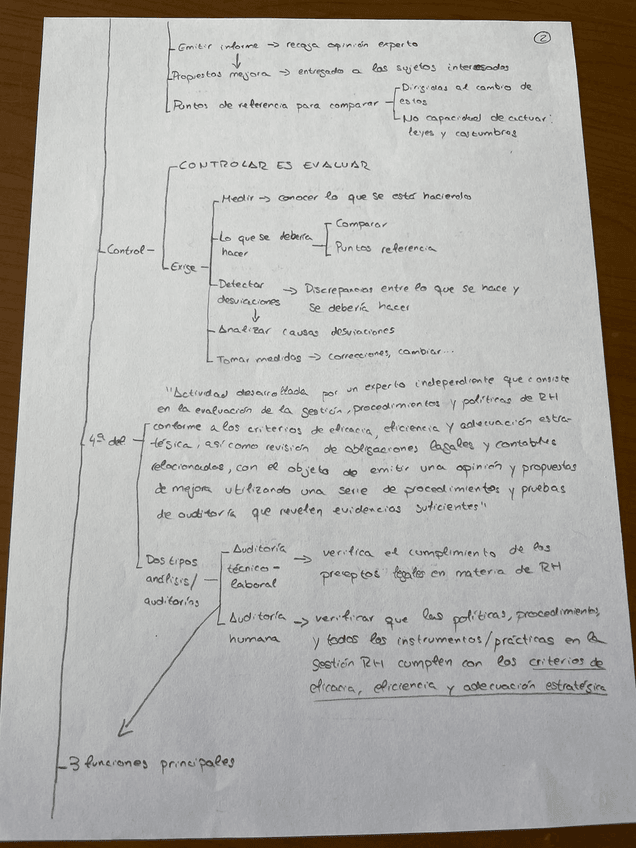 2
Emitir informe → recoja opinión experto
Propuestas mejora → entregado a los sujetos interesados
Puntos de referencia para comparar
Dirigidas al cambio de
estos
No capacidad de actuar:
leyes y costumbres
Control
CONTROLAR ES EVALUAR
Exige
Medir → conocer lo que se está haciendo
Lo que se debería
hacer
Comparar
Puntos referencia
Detectar
desviaciones
→ Discrepancias entre lo que se hace y
se debería hacer
Analizar causas desviaciones
Tomar medidas → correcciones, cambiar...
4ª def
"Actividad desarrollada por un experto independiente que consiste
en la evaluación de la gestión, procedimientos y políticas de RH
conforme a los criterios de eficacia, eficiencia y adecuación estra-
tégica, así como revisión de obligaciones legales y contables
relacionadas, con el objeto de emitir una opinión y propuestas
de mejora utilizando una serie de procedimientos y pruebas
de auditoría que revelen evidencias suficientes"
Dos tipos
análisis/
auditorías
Auditoría
técnico-
laboral
→ verifica el cumplimiento de los
preceptos legales en materia de RH
Auditoría
humana
→ verificar que las políticas, procedimientos,
y todos los instrumentos/prácticas en la
gestión RH cumplen con los criterios de
eficacia, eficiencia y adecuación estratégica
3 funciones principales